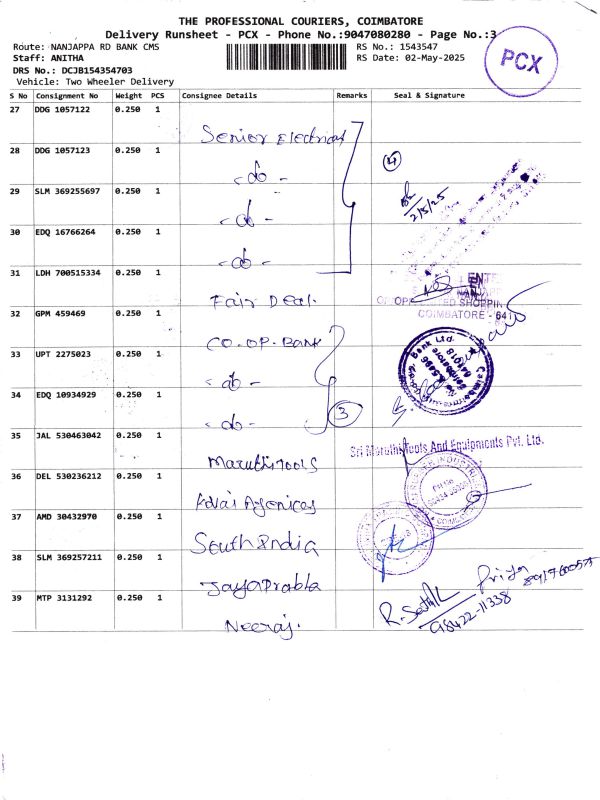 THE PROFESSIONAL COURIERS, COIMBATORE
Delivery Runsheet - PCX - Phone No.:9047080280 - Page No.:3
Route: NANJAPPA RD BANK CMS
RS No.: 1543547
Staff: ANITHA
RS Date: 02-May-2025
PCX
DRS No.: DCJB154354703
Vehicle: Two Wheeler Delivery
S No Consignment No Weight PCS Consignee Details Remarks Seal & Signature
27 DDG 1057122 0.250 1
Senior Electrical
28 DDG 1057123 0.250 1
4
-do-
29 SLM 369255697 0.250 1
2/5/25
-do-
30 EDQ 16766264 0.250 1
-do-
31 LDH 700515334 0.250 1
Fair Deal.
COIMBATORE - 641
32 GPM 459469 0.250 1
CO.OP.BANK
33 UPT 2275023 0.250 1
-do-
34 EDQ 10934929 0.250 1
3
-do-
35 JAL 530463042 0.250 1
Sri Maruthi Tools And Equipments Pvt. Ltd.
Maruthi Tools
36 DEL 530236212 0.250 1
37 AMD 30432970 0.250 1
South India
38 SLM 369257211 0.250 1
Jayaprabha
39 MTP 3131292 0.250 1
98422-11338
Neeraj.